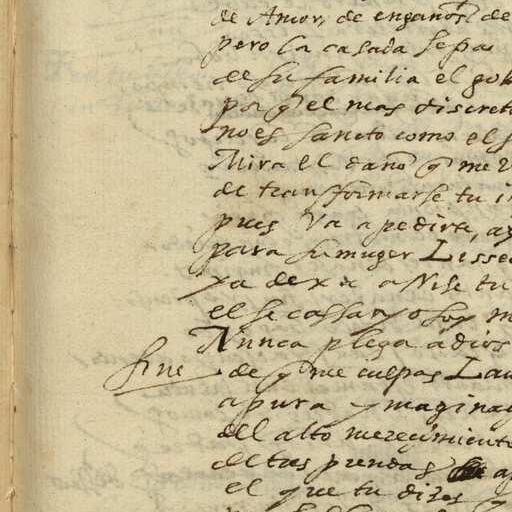 de Amor, de engaños de
pero la casada sepa
de su familia el go
por q̄ el mas discreto
no es sancto como el
Mira el daño q̄ me
de transformarse tu
pues va a pedirte,
para su muger Lisse
ya dexa a Nise tu
el se cassa yo soy m
Nunca plega a dios
fine de q̄ me culpas Lau
apura ymagina
del alto mereçimiento
de tus prendas
el que tu dizes